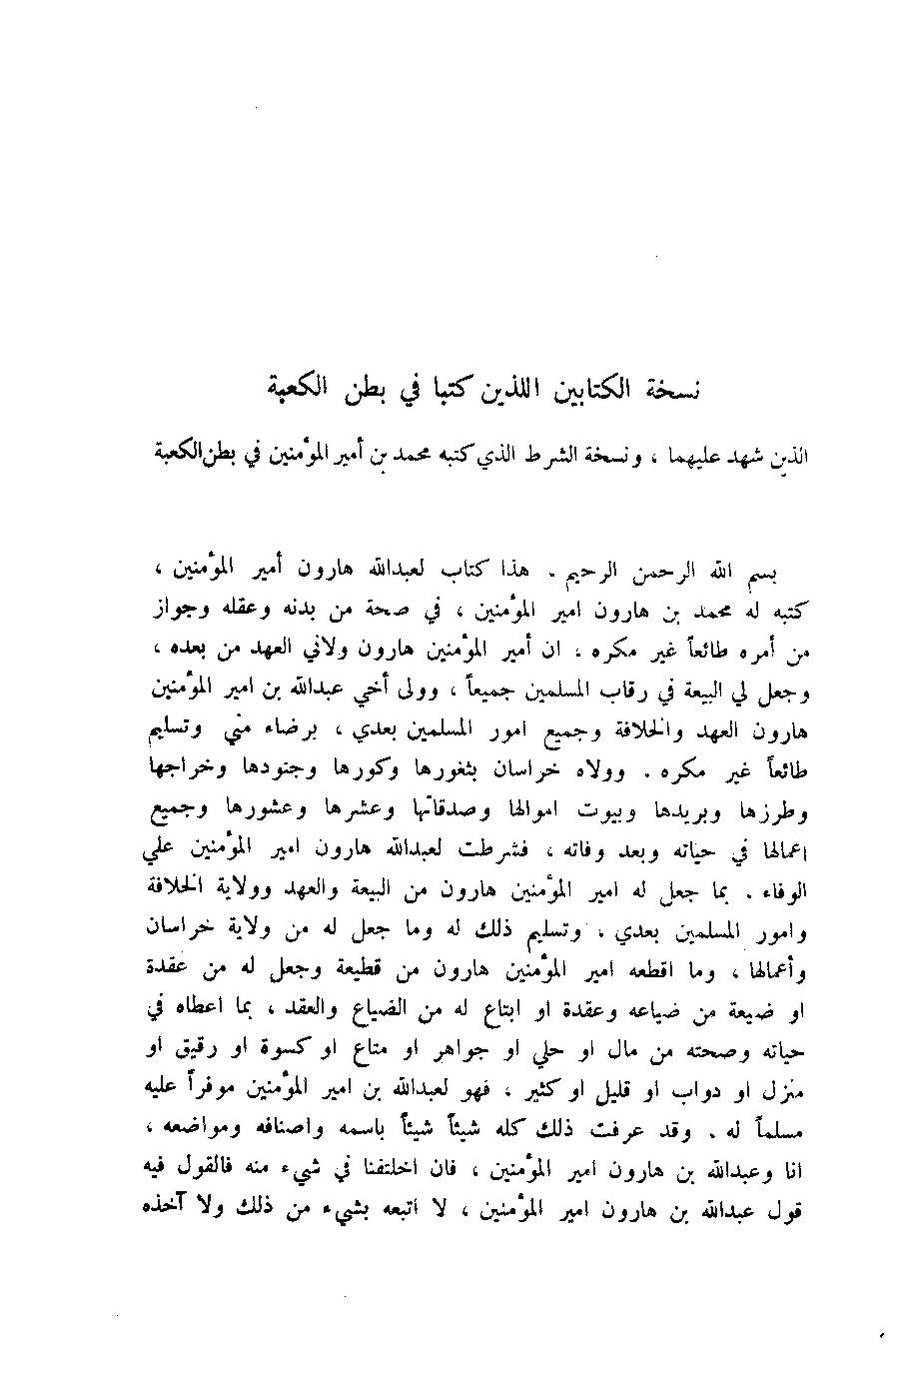 نسخة الكتابين اللذين كتبا في بطن الكعبة
الذين شهد عليهما ، ونسخة الشرط الذي كتبه محمد بن أمير المؤمنين في بطن الكعبة
بسم الله الرحمن الرحيم . هذا كتاب لعبدالله هارون أمير المؤمنين ،
كتبه له محمد بن هارون امير المؤمنين ، في صحة من بدنه وعقله وجواز
من أمره طائعاً غير مكره ، ان أمير المؤمنين هارون ولاني العهد من بعده ،
وجعل لي البيعة في رقاب المسلمين جميعاً ، وولى أخي عبدالله بن امير المؤمنين
هارون العهد والخلافة وجميع امور المسلمين بعدي ، برضاء مني وتسليم
طائعاً غير مكره . وولاه خراسان بثغورها وكورها وجنودها وخراجها
وطرزها وبريدها وبيوت اموالها وصدقاتها وعشرها وعشورها وجميع
اعمالها في حياته وبعد وفاته ، فشرطت لعبدالله هارون امير المؤمنين علي
الوفاء . بما جعل له امير المؤمنين هارون من البيعة والعهد وولاية الخلافة
وامور المسلمين بعدي ، وتسليم ذلك له وما جعل له من ولاية خراسان
وأعمالها ، وما اقطعه امير المؤمنين هارون من قطيعة وجعل له من عقدة
او ضيعة من ضياعه وعقدة او ابتاع له من الضياع والعقد ، بما اعطاه في
حياته وصحته من مال او حلي او جواهر او متاع او كسوة او رقيق او
منزل او دواب او قليل او كثير ، فهو لعبدالله بن امير المؤمنين موفراً عليه
مسلماً له . وقد عرفت ذلك كله شيئاً شيئاً باسمه واصنافه ومواضعه ،
انا وعبدالله بن هارون امير المؤمنين ، فان اختلفنا في شيء منه فالقول فيه
قول عبدالله بن هارون امير المؤمنين ، لا اتبعه بشيء من ذلك ولا آخذه